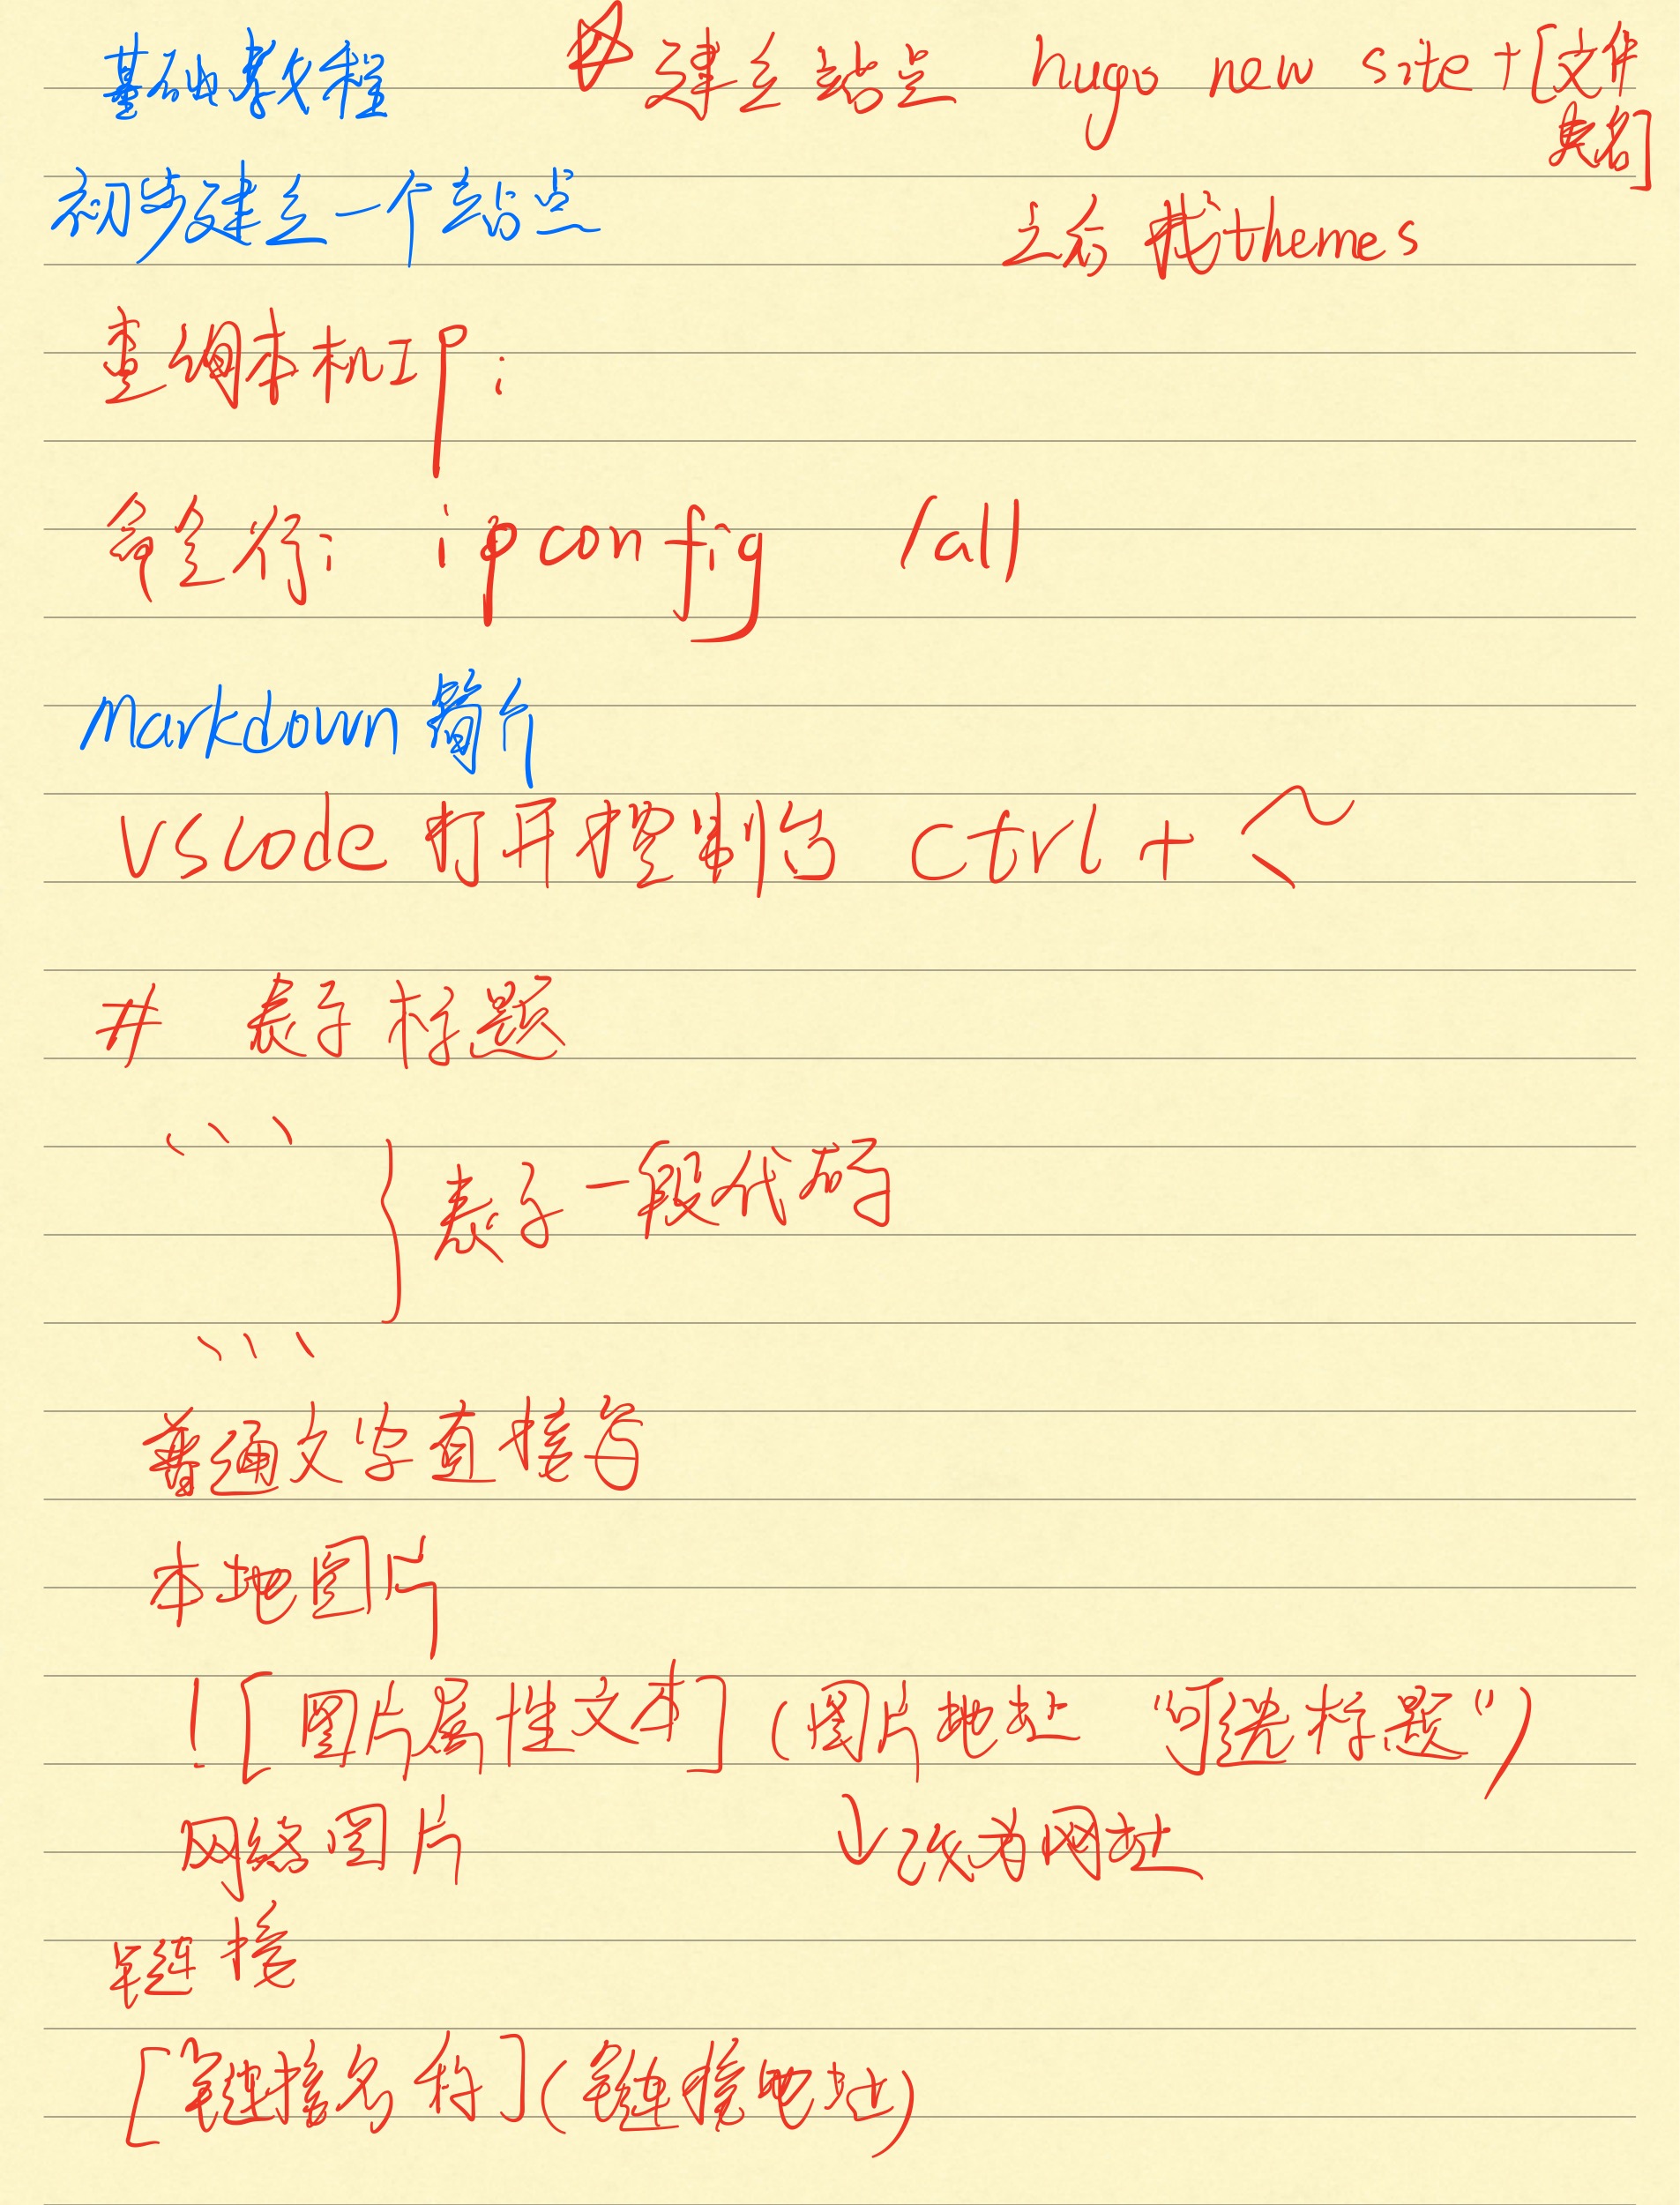 基础教程
建立站点 hugo new site+[文件夹名]
初步建立一个站点
之后 找themes
查询本机IP:
命令行: ipconfig /all
Markdown 简介
VScode 打开控制台 Ctrl + ~
# 表示标题
```
} 表示一段代码
```
普通文字直接写
本地图片
![图片属性文本](图片地址 "可选标题")
网络图片 ↓改为网址
链接
[链接名称](链接地址)